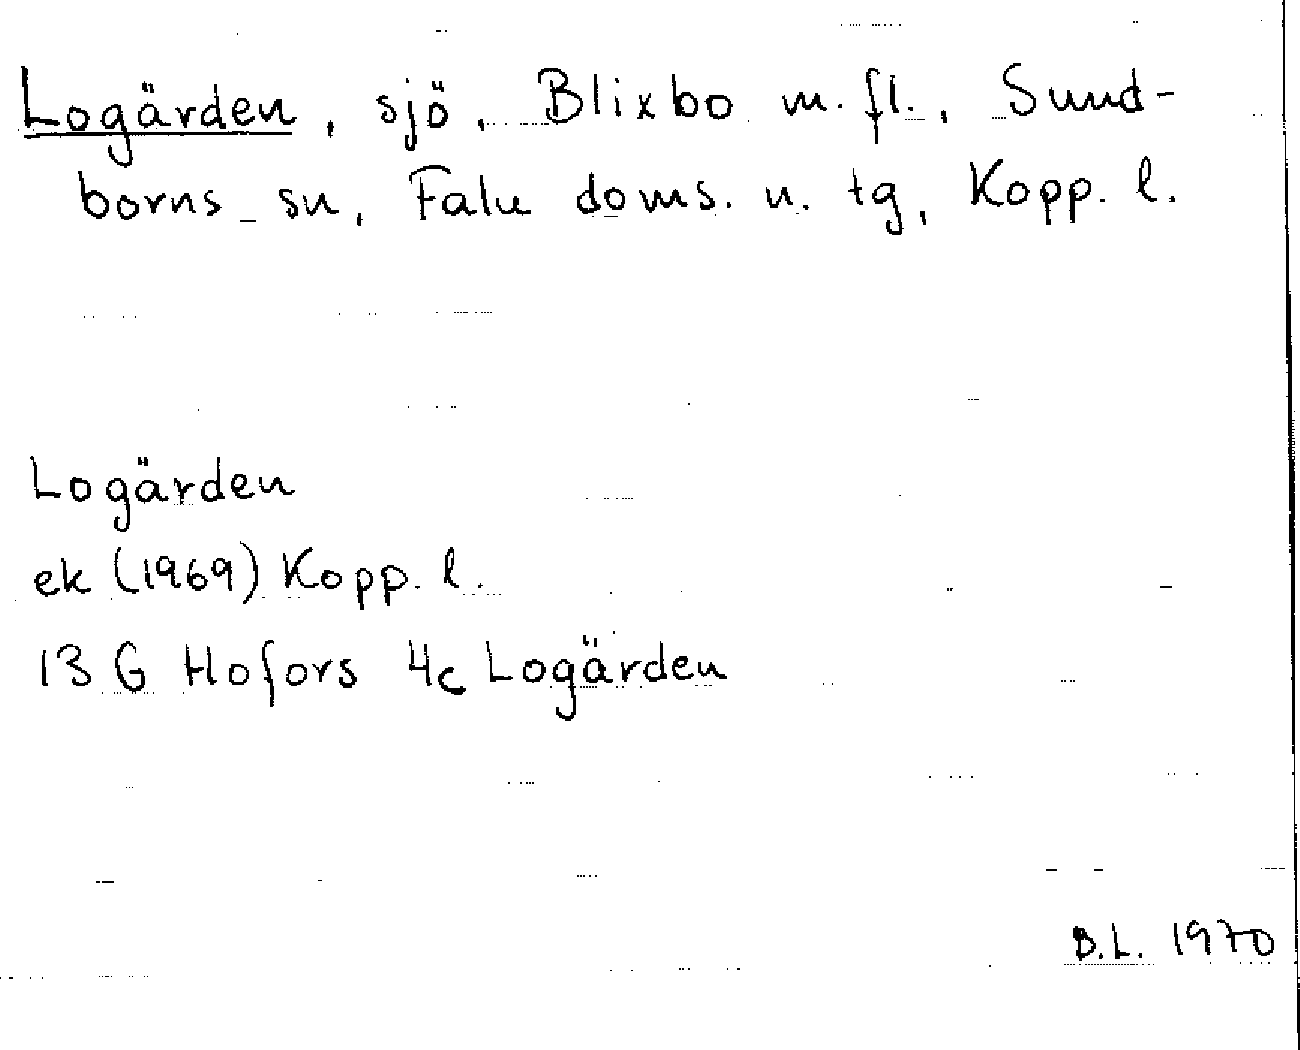 Logärden, sjö, Blixbo m. fl., Sund-
borns sn, Falu doms. n. tg, Kopp. l.
Logärden
ek (1969) Kopp. l.
13 G Hofors 4c Logärden
B.L. 1970